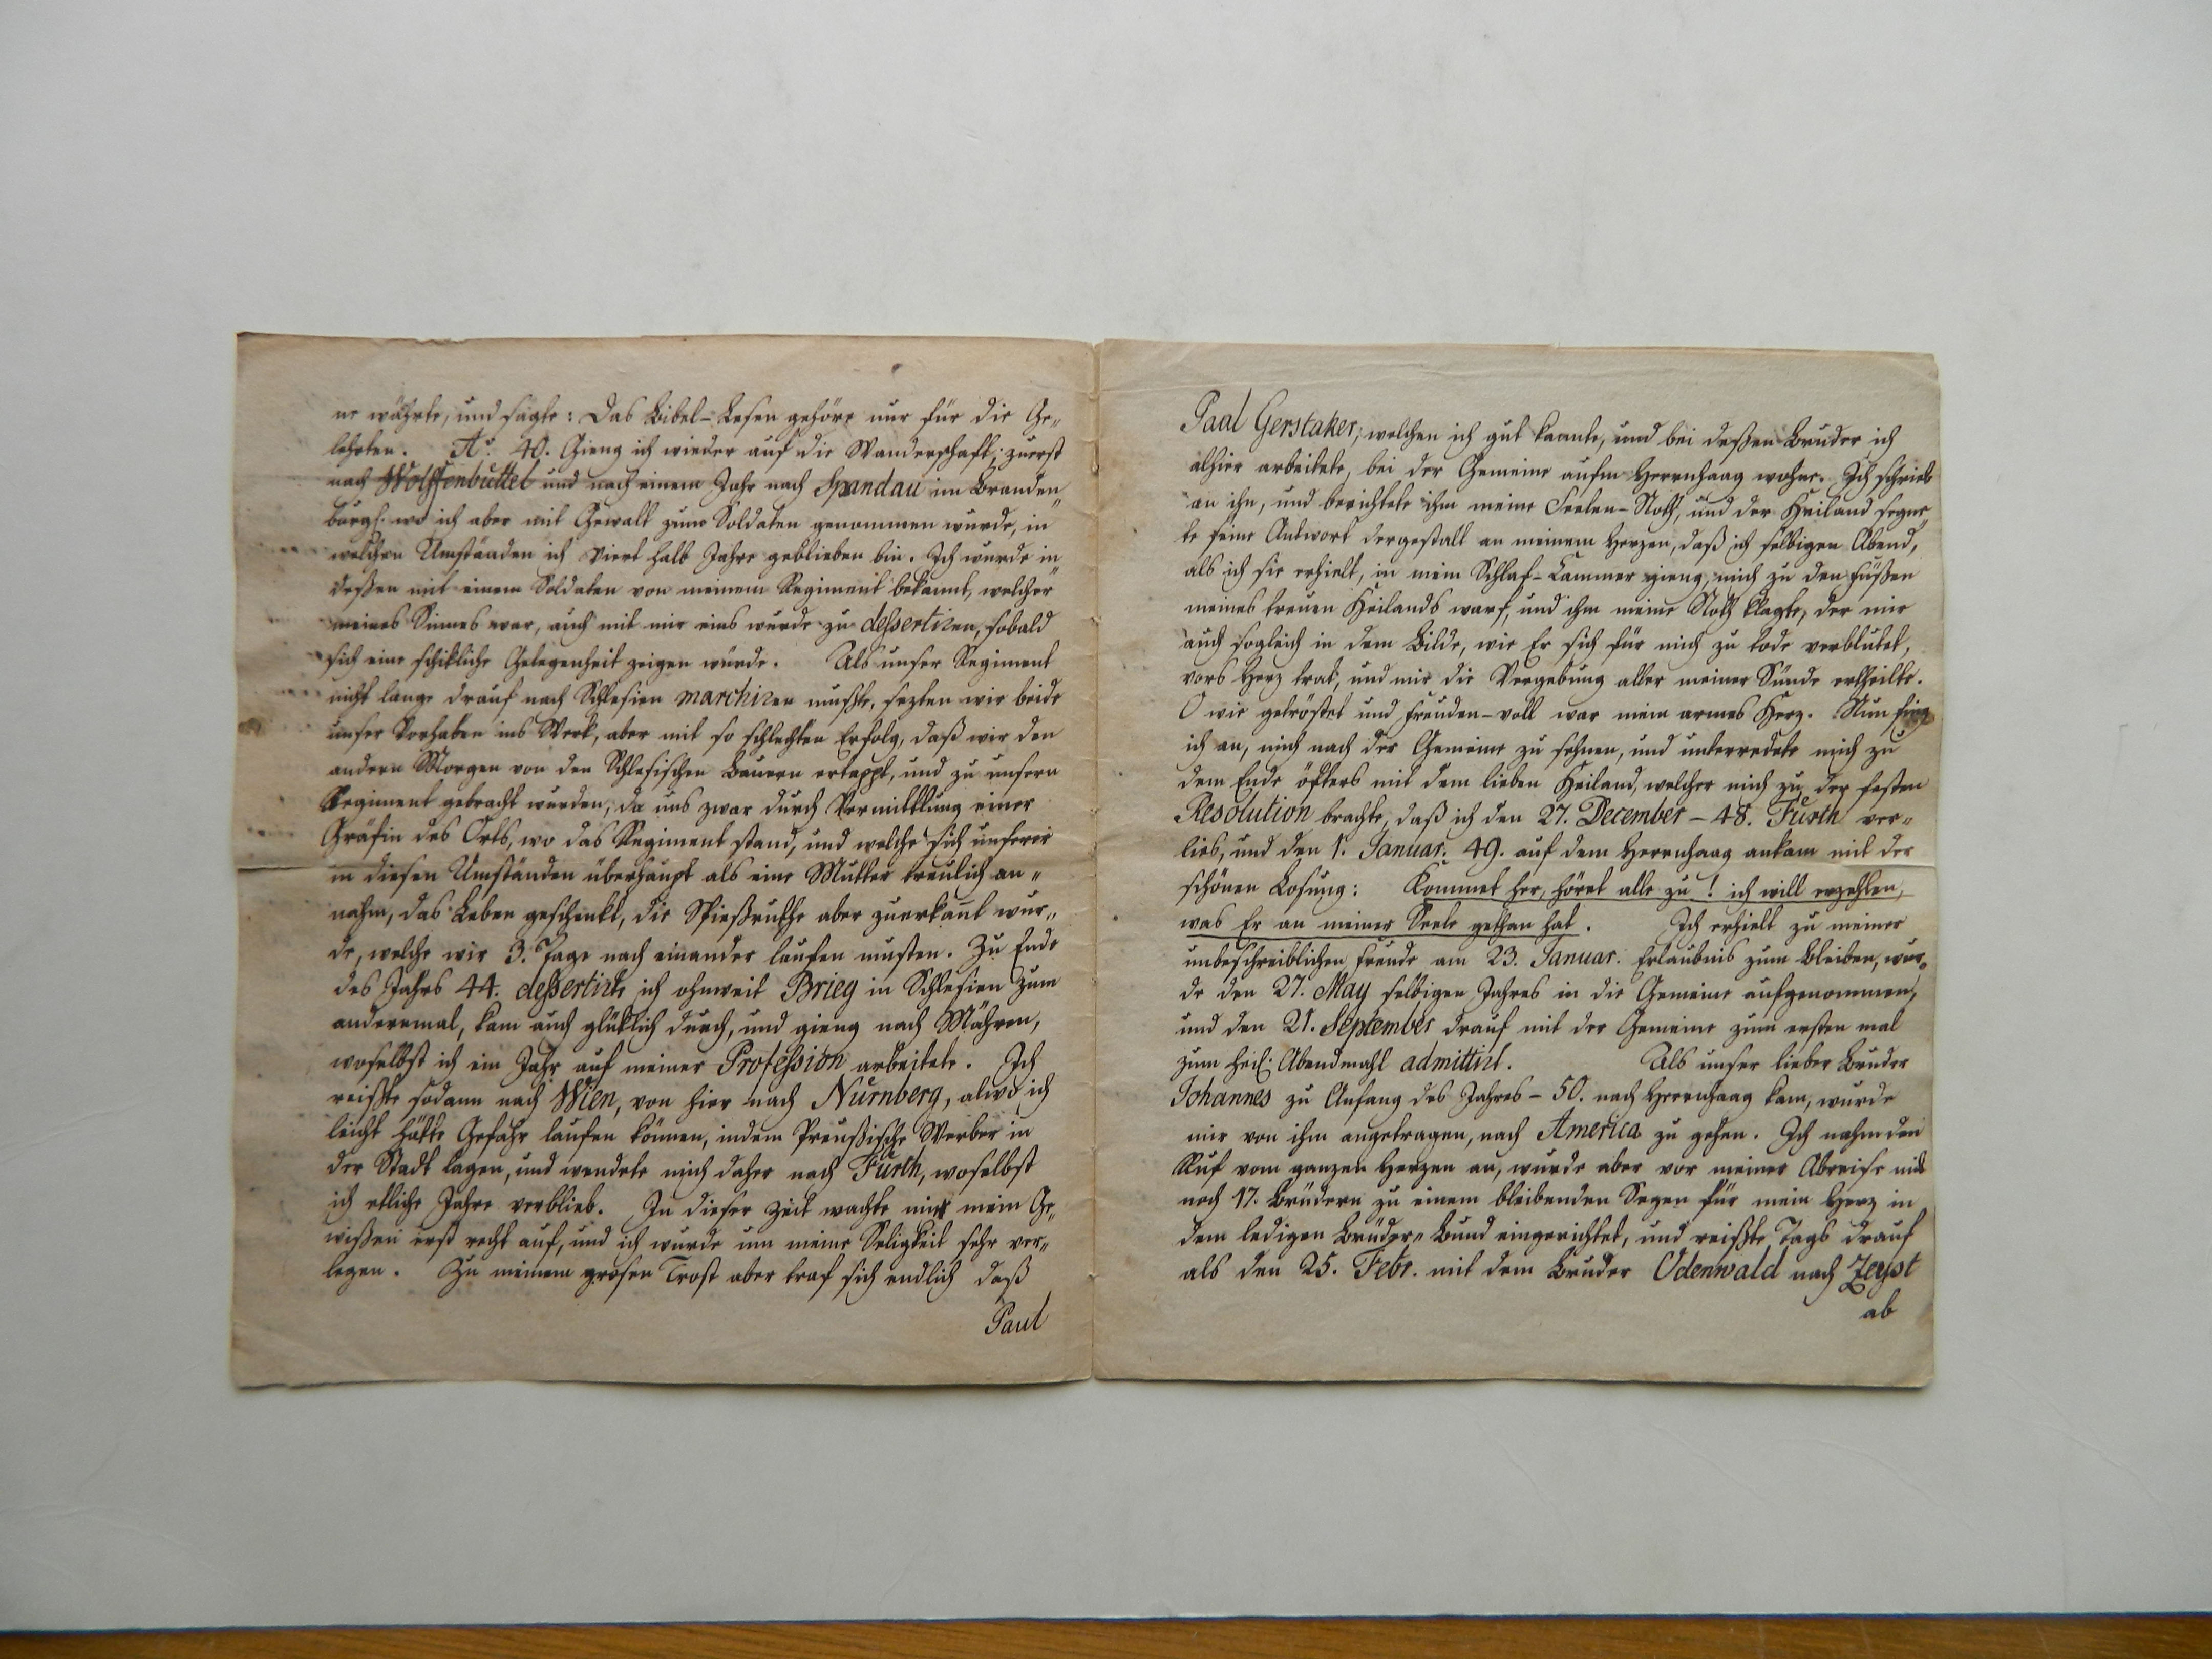 ne währte, und sagte: Das Bibel-Lesen gehöre nur für die Ge„
lehrten. Aº. 40. Gieng ich wieder auf die Wanderschaft; zuerst
nach Wolffenbüttel und nach einem Jahr nach Spandau im Branden„
burgs. wo ich aber mit Gewalt zum Soldaten genommen wurde, in
welchen Umständen ich Viert halb Jahre geblieben bin. Ich wurde in„
deßen mit einem Soldaten von meinem Regiment bekannt, welcher
meines Sinnes war, auch mit mir eins wurde zu deßertiren, sobald
sich eine schikliche Gelegenheit zeigen würde. Als unser Regiment
nicht lange drauf nach Schlesien marchiren mußte, sezten wir beide
unser Vorhaben ins Werk, aber mit so schlechten Erfolg, daß wir den
andern Morgen von den Schlesischen Bauern ertappt, und zu unserm
Regiment gebracht wurden; da uns zwar durch Vermittlung einer
Gräfin des Orts, wo das Regiment stand, und welche sich unserer
in diesen Umständen überhaupt als eine Mutter treulich an„
nahm, das Leben geschenkt, die Spießruthe aber zuerkañt wur„
de, welche wir 3. Tage nach einander laufen musten. Zu Ende
des Jahrs 44. deßertirte ich ohnweit Brieg in Schlesien zum
anderemal, kam auch glüklich durch, und gieng nach Mähren,
woselbst ich ein Jahr auf meiner Profeßion arbeitete. Ich
reißte sodann nach Wien, von hier nach Nürnberg, alwo ich
leicht hätte Gefahr laufen können, indem Preußische Werber in
der Stadt lagen, und wendete mich daher nach Fürth, woselbst
ich etliche Jahre verblieb. In dieser Zeit wachte mir mein Ge„
wißen erst recht auf, und ich wurde um meine Seligkeit sehr ver„
legen. Zu meinem grosen Trost aber traf sich endlich daß
Paul
Paul Gerstaker, welchen ich gut kannte, und bei deßen Bruder ich
alhier arbeitete, bei der Gemeine aufm Herrnhaag wohne. Ich schrieb
an ihn, und berichtete ihm meine Seelen-Noth, und der Heiland segne„
te seine Antwort dergestalt an meinem Herzen, daß ich selbigen Abend,
als ich sie erhielt, in mein Schlaf-Cammer gieng, mich zu den Füßen
meines treuen Heilands warf, und ihm meine Noth klagte, der mir
auch sogleich in dem Bilde, wie Er sich für mich zu tode verblutet,
vors Herz trat, und mir die Vergebung aller meiner Sünde ertheilte.
O wie getröstet und freuden-voll war mein armes Herz. Nun fing
ich an, mich nach der Gemeine zu sehnen, und unterredete mich zu
dem Ende öfters mit dem lieben Heiland, welcher mich zu der festen
Resolution brachte, daß ich den 27. December - 48. Fürth ver„
lies, und den 1. Januar. 49. auf dem Herrnhaag ankam mit der
schönen Losung: Kommet her, höret alle zu! ich will erzehlen,
was Er an meiner Seele gethan hat. Ich erhielt zu meiner
unbeschreiblichen Freude am 23. Januar. Erlaubnis zum bleiben, wur„
de den 27. May selbigen Jahres in die Gemeine aufgenommen,
und den 21. September drauf mit der Gemeine zum ersten mal
zum heil. Abendmahl admittirt. Als unser lieber Bruder
Johannes zu Anfang des Jahres - 50. nach Herrnhaag kam, wurde
mir von ihm angetragen, nach America zu gehen. Ich nahm den
Ruf vom ganzen Herzen an, wurde aber vor meiner Abreise mit
noch 17. Brüdern zu einem bleibenden Segen für mein Herz in
dem ledigen Brüder„ Bund eingerichtet, und reißte Tags drauf
als den 25. Febr. mit dem Bruder Odenwald nach Zeyst
ab